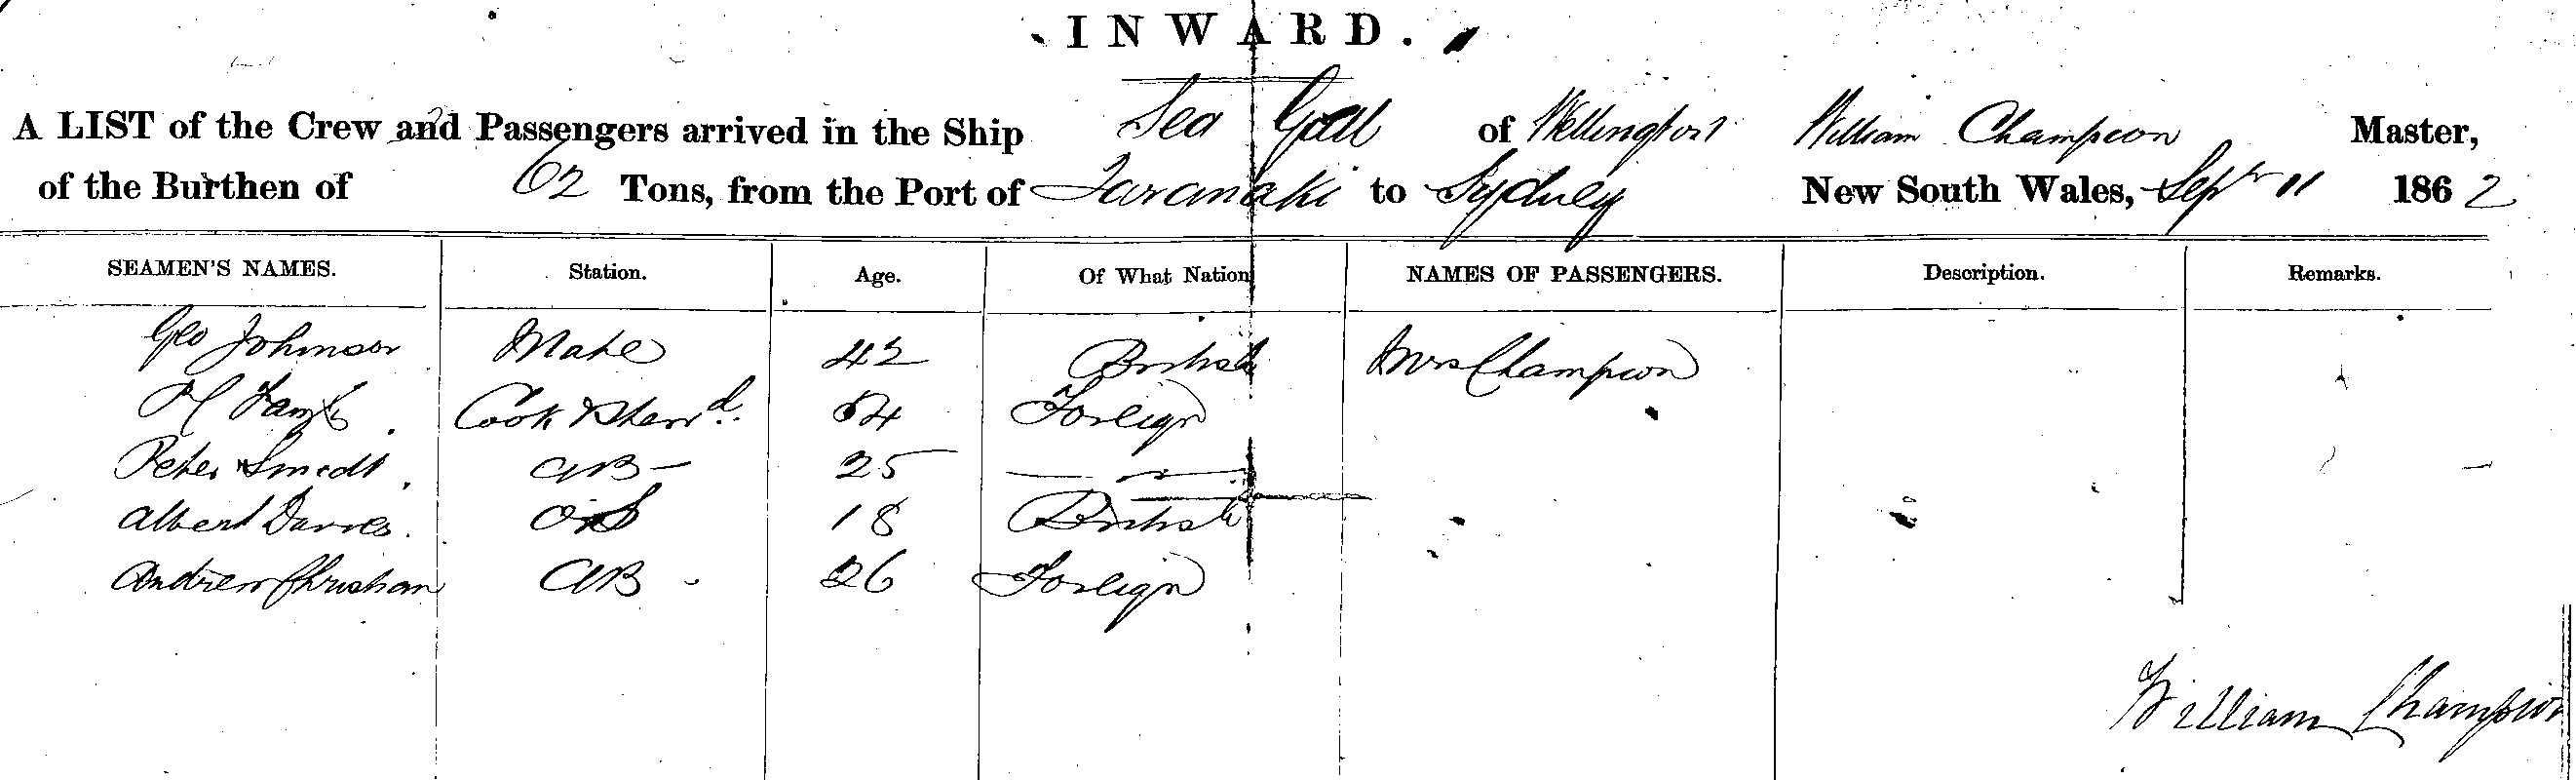 INWARD.
A LIST of the Crew and Passengers arrived in the Ship Sea of Wellington William Champion Master,
of the Burthen of 62 Tons, from the Port of Taranaki to Sydney New South Wales, Sepr 11 1862
SEAMEN'S NAMES. Station. Age. Of What Nation NAMES OF PASSENGERS. Description. Remarks.
Geo Johnson Mate 42 British Mrs Champion
Cook & Stewd. 54 Foreign
Peter Smedt AB - 25 — " —
Albert Davies. OS 18 British
Andrew Christian AB - 26 Foreign
William Champion